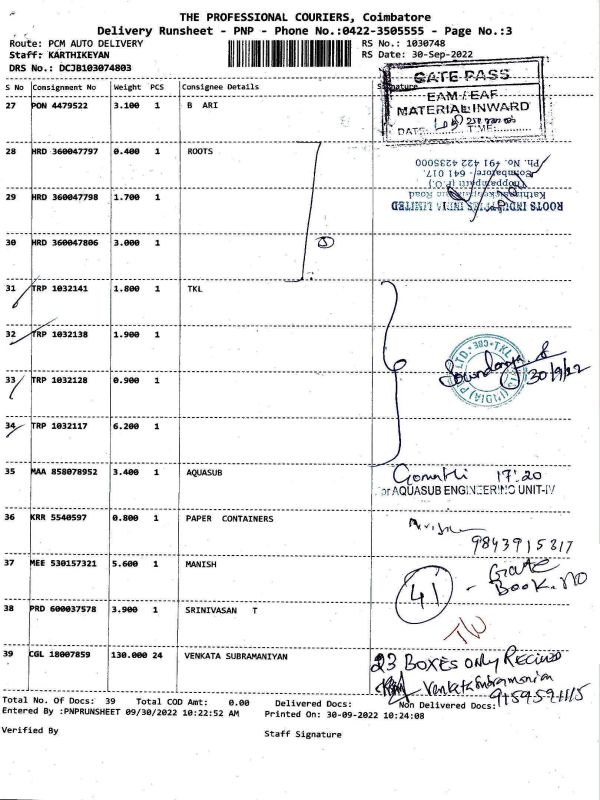 THE PROFESSIONAL COURIERS, Coimbatore
Delivery Runsheet - PNP - Phone No.:0422-3505555 - Page No.:3
Route: PCM AUTO DELIVERY
RS No.: 1030748
Staff: KARTHIKEYAN
RS Date: 30-Sep-2022
DRS No.: DCJB103074803
S No Consignment No Weight PCS Consignee Details Signature
GATE PASS
EAM / EAF
MATERIAL INWARD
DATE:........... TIME:...........
27 PON 4479522 3.100 1 B ARI
28 HRD 360047797 0.400 1 ROOTS
Ph. No. +91 422 4235000
Coimbatore - 641 017.
Thoppampatti (P.O.)
ROOTS INDUSTRIES INDIA LIMITED
29 HRD 360047798 1.700 1
30 HRD 360047806 3.000 1
31 TRP 1032141 1.800 1 TKL
32 TRP 1032138 1.900 1
Soundarya. S
30/9/22
33 TRP 1032128 0.900 1
34 TRP 1032117 6.200 1
35 MAA 858078952 3.400 1 AQUASUB
Gomathi 17:20
for AQUASUB ENGINEERING UNIT-IV
36 KRR 5540597 0.800 1 PAPER CONTAINERS
9843915317
37 MEE 530157321 5.600 1 MANISH
41 - Gate
Book. No
38 PRD 600037578 3.900 1 SRINIVASAN T
39 CGL 18007859 130.000 24 VENKATA SUBRAMANIYAN
23 BOXES ONLY RECEIVED
Venkata Subramanian
Total No. Of Docs: 39 Total COD Amt: 0.00 Delivered Docs: Non Delivered Docs:
Entered By :PNPRUNSHEET 09/30/2022 10:22:52 AM Printed On: 30-09-2022 10:24:08
Verified By
Staff Signature